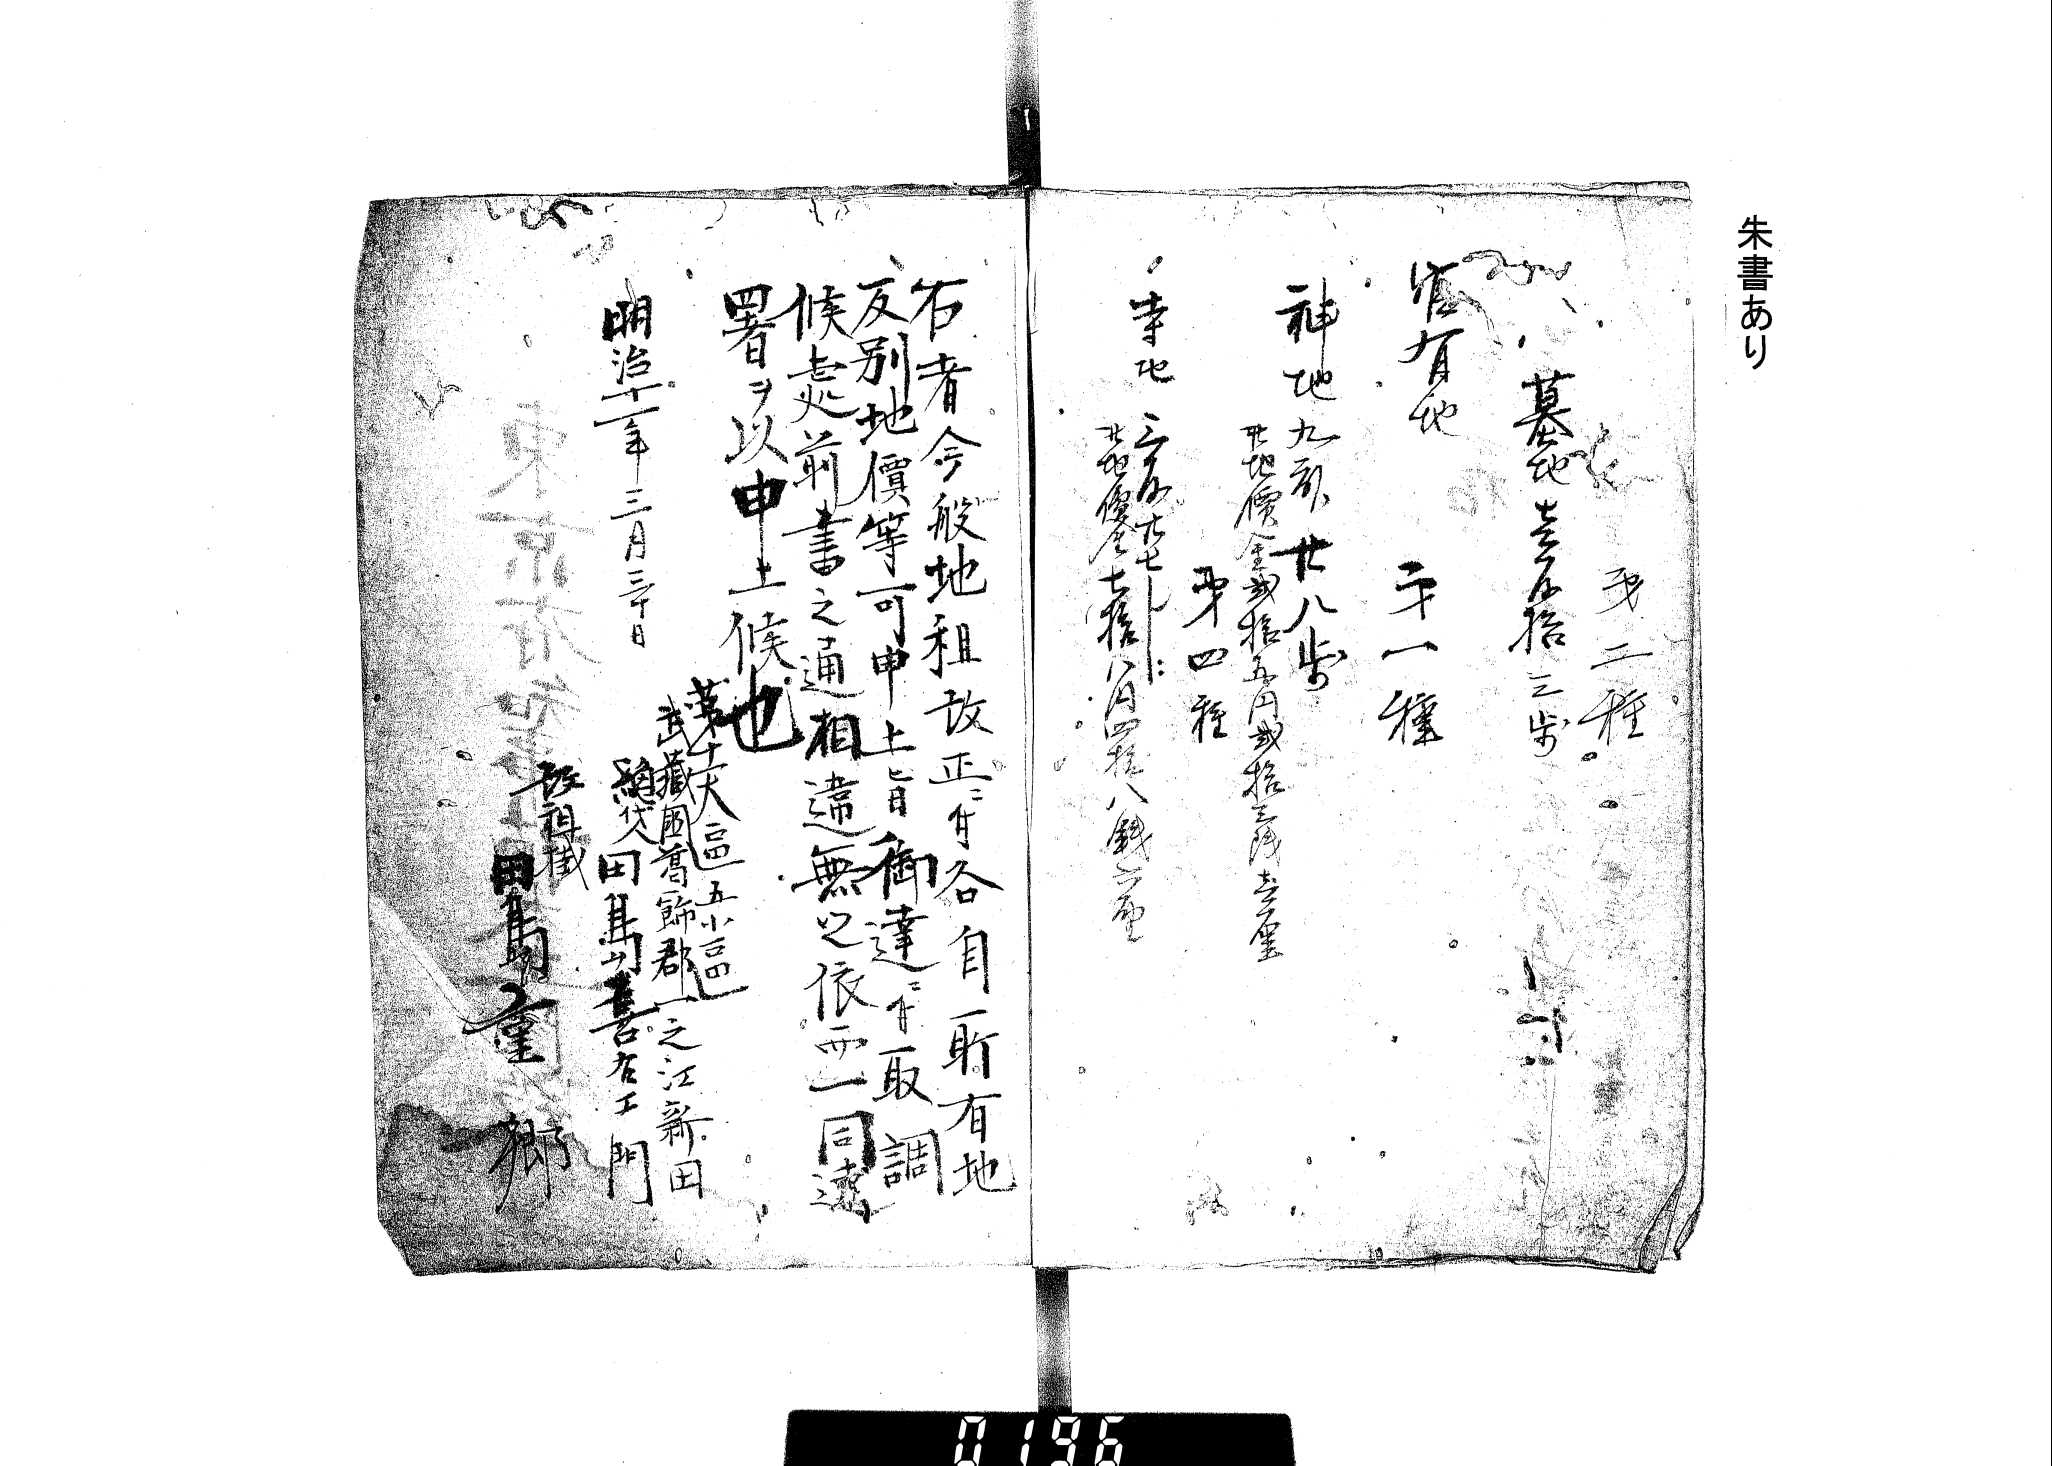 朱書あり
第二種
墓地 壱反拾三歩
官有地
第一種
神地 九畝廿八歩
此地價金弐拾五円弐拾三銭壱厘
第四種
寺地 三反廿七歩
此地價金七拾八円四拾八銭六厘
右者今般地租改正ニ付各自所有地
反別地價等可申上旨御達ニ付取調
候処前書之通相違無之依而一同連
署ヲ以申上候也
明治十一年三月三十日
第十一大區五小區
武蔵國葛飾郡一之江新田
総代 田島喜右エ門
改租掛
田島
0196